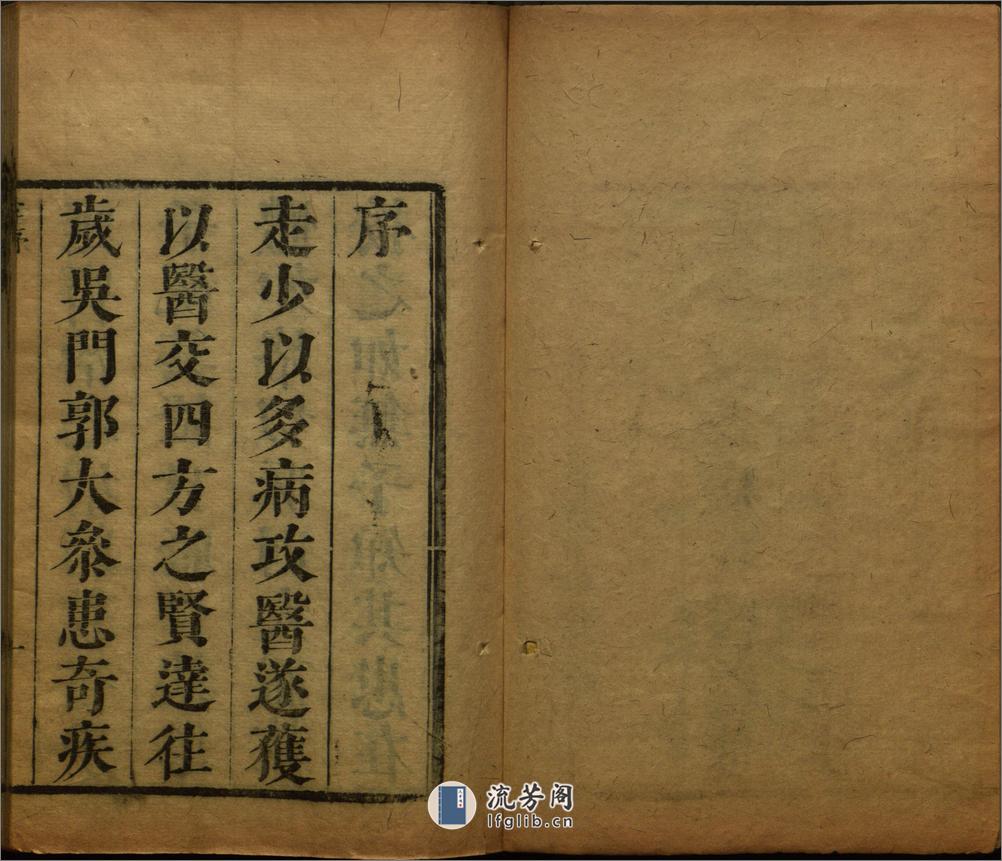 序
走少以多病攻醫遂獲
以醫交四方之賢達往
歲吳門郭大叅患奇疾
序
一
流芳阁
lfglib.cn